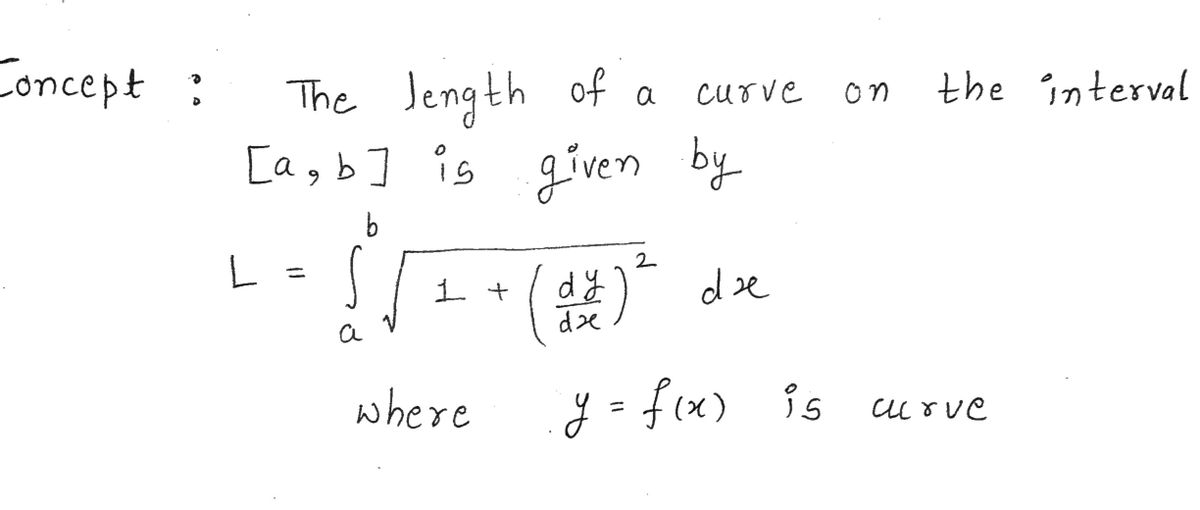 Concept : The length of a curve on the interval
[a, b] is given by
L = ∫_a^b √(1 + (dy/dx)^2) dx
where y = f(x) is curve